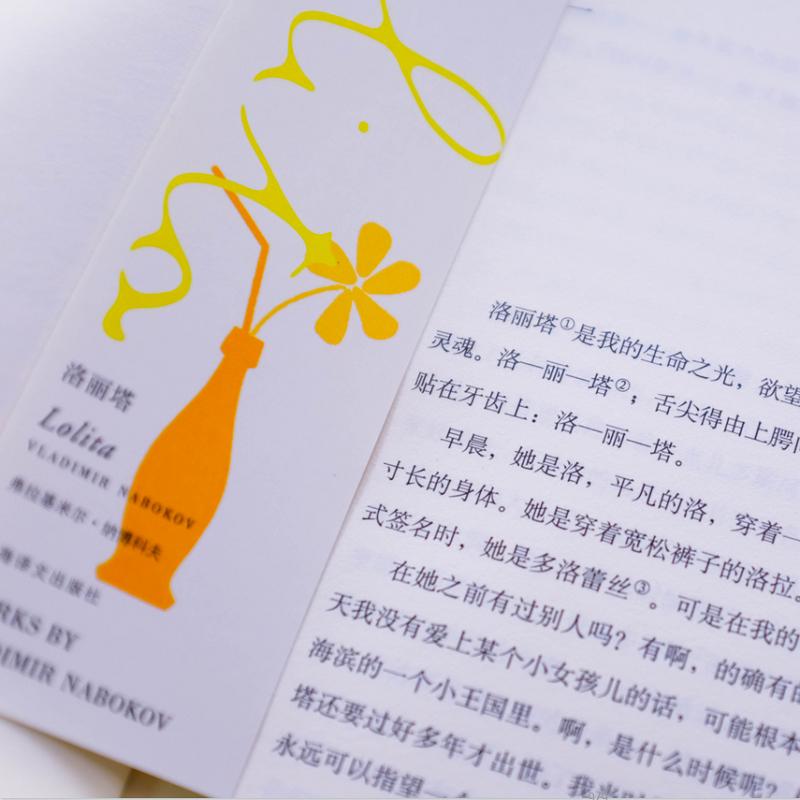 洛丽塔
Lolita
VLADIMIR NABOKOV
弗拉基米尔·纳博科夫
海译文出版社
RKS BY
DIMIR NABOKOV
洛丽塔①是我的生命之光，欲望
灵魂。洛—丽—塔②；舌尖得由上腭向
贴在牙齿上：洛—丽—塔。
早晨，她是洛，平凡的洛，穿着一
寸长的身体。她是穿着宽松裤子的洛拉。
式签名时，她是多洛蕾丝③。可是在我的
在她之前有过别人吗？有啊，的确有的
天我没有爱上某个小女孩儿的话，可能根本
海滨的一个小王国里。啊，是什么时候呢？
塔还要过好多年才出世。我当时
永远可以指望一个